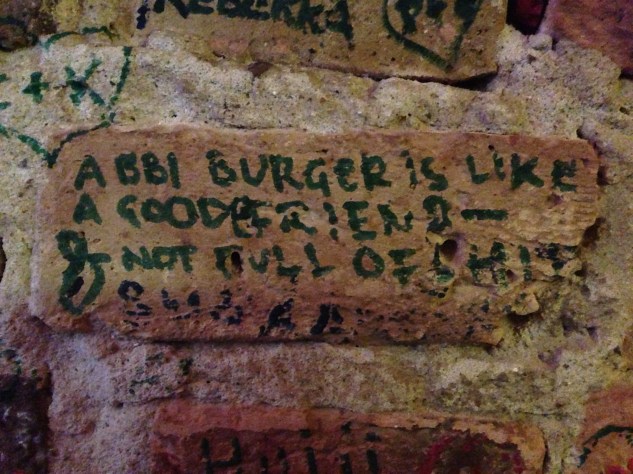 REBEKKA
+K
A BBI BURGER IS LIKE
A GOOD FRIEND —
& NOT FULL OF SHIT